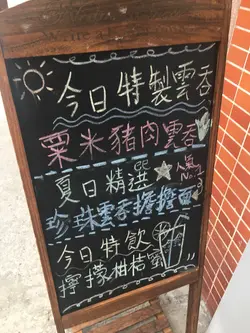 今日特製雲吞
粟米豬肉雲吞
夏日精選
人氣
No.
珍珠雲吞擔擔面
今日特飲
檸檬柑桔蜜